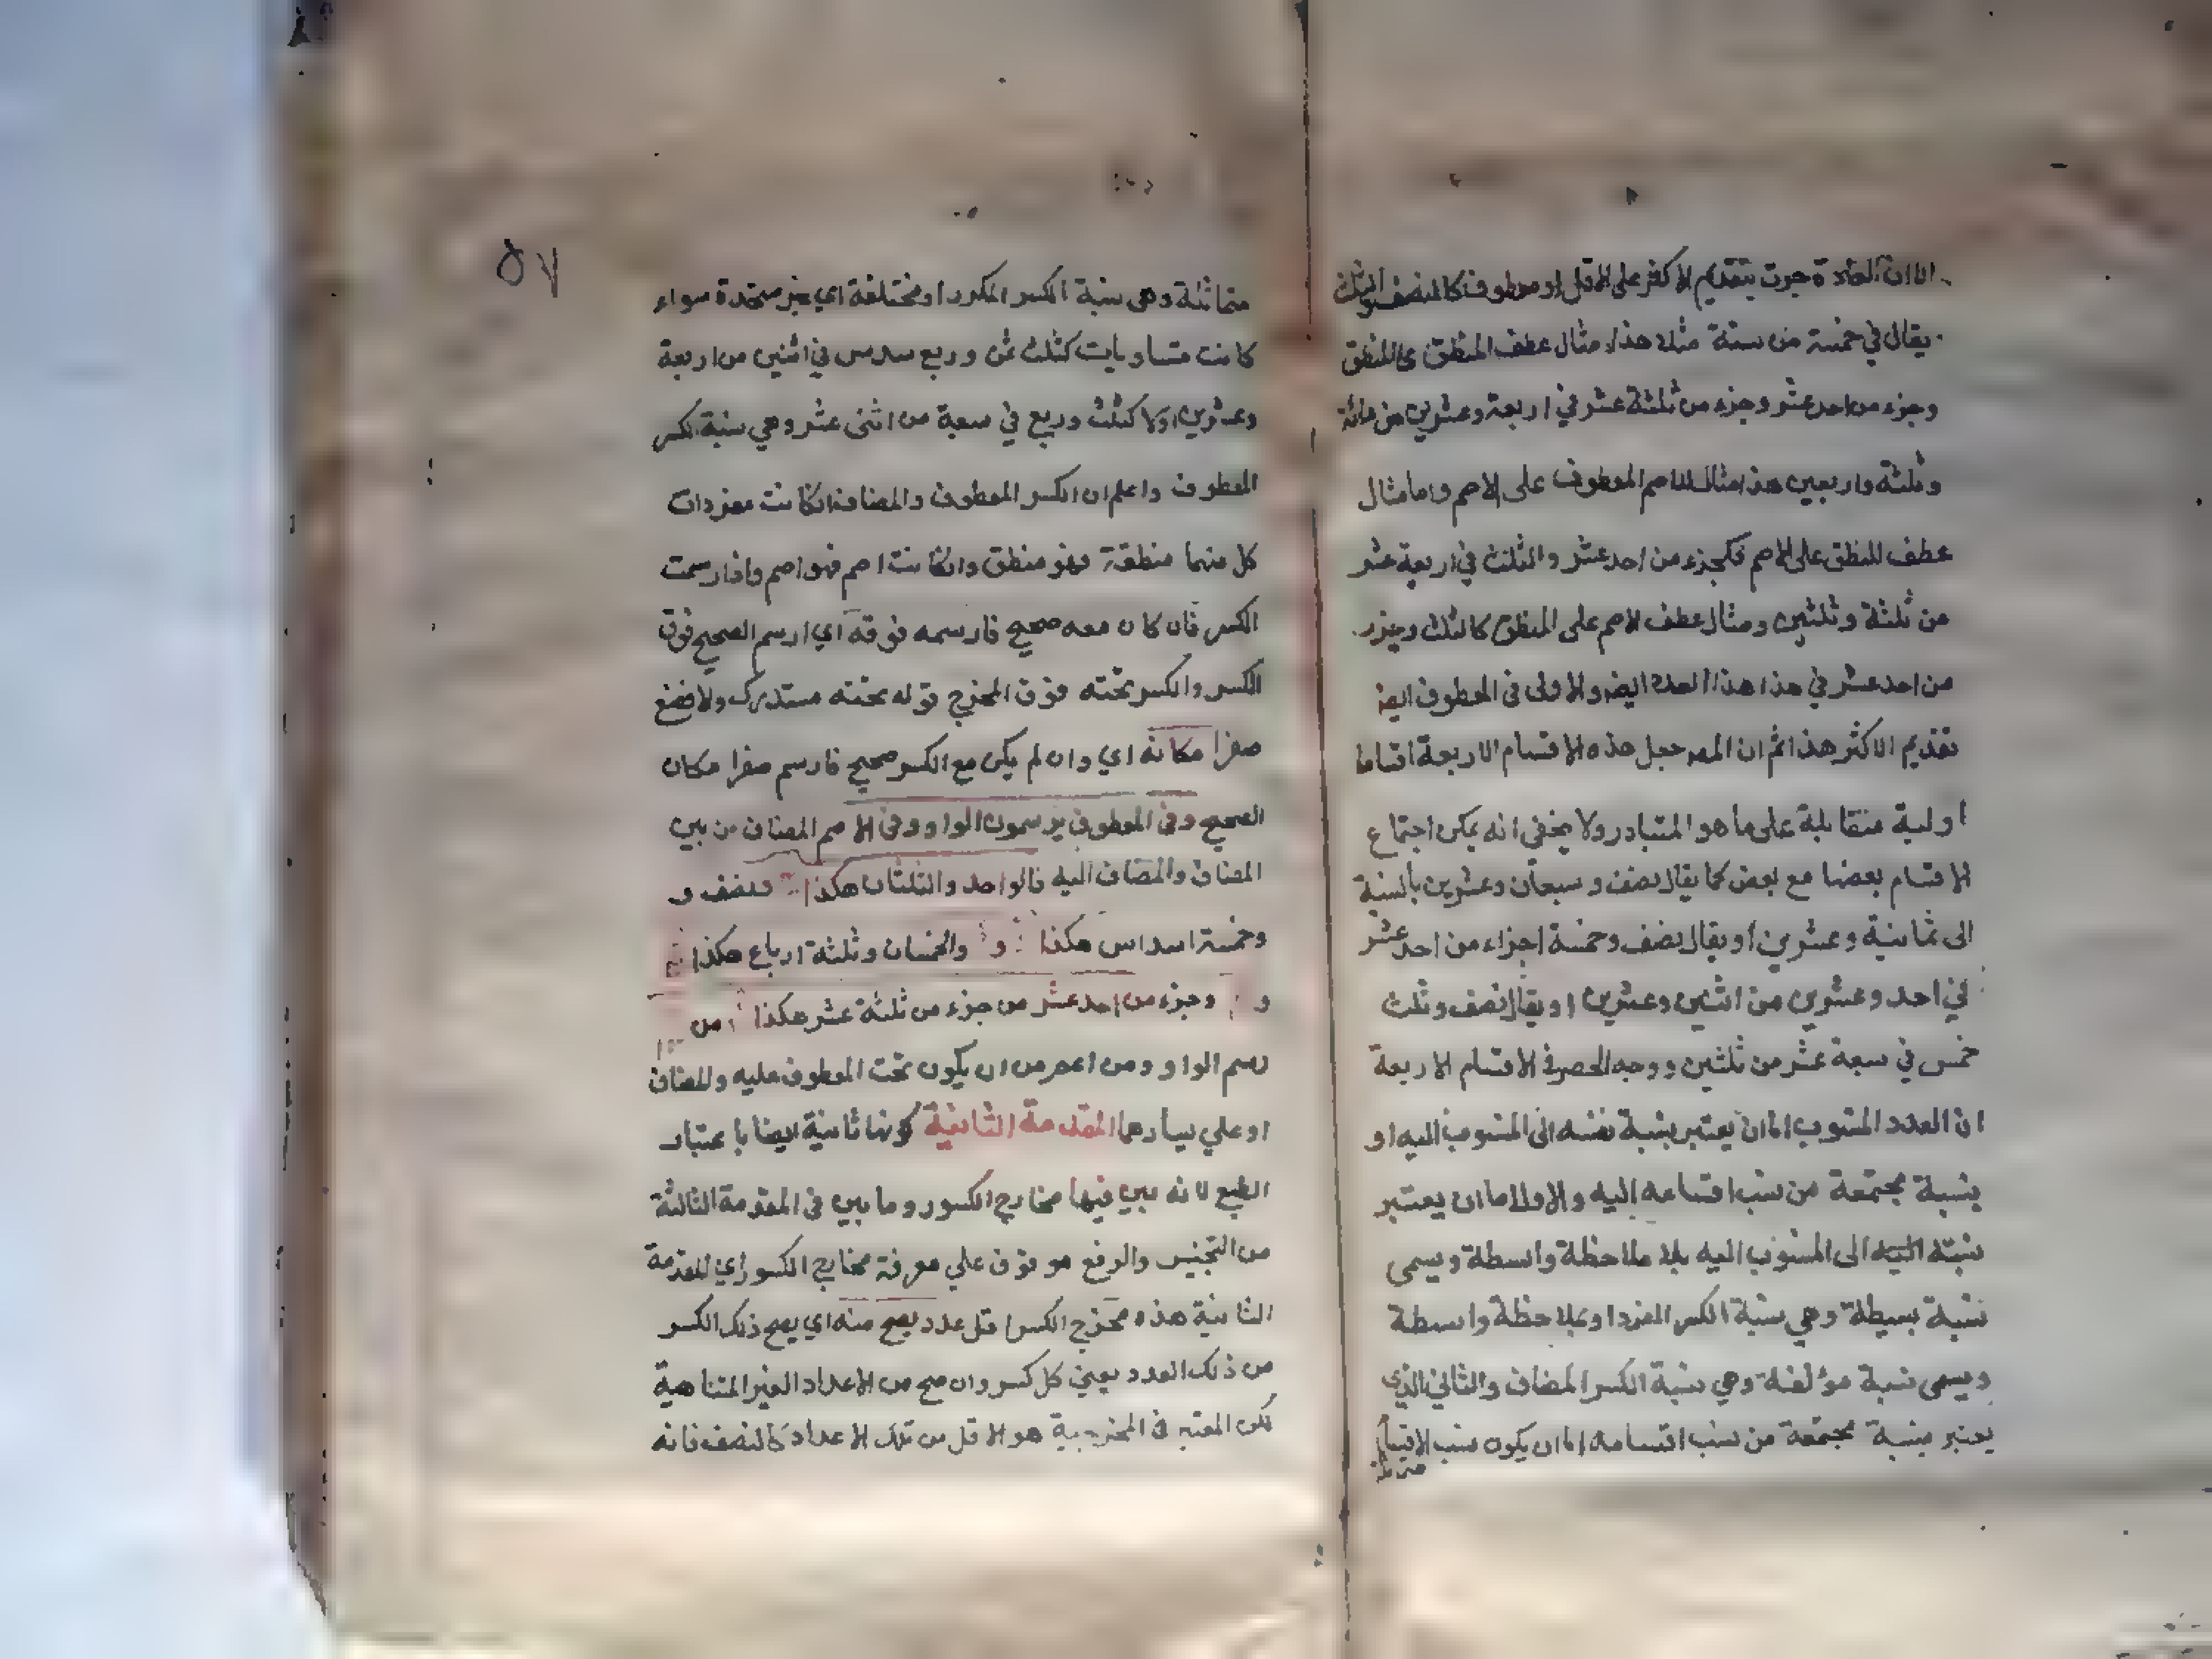 الا ان العادة جرت بتقديم الاكثر على الاقل او معطوف كالنصف والثلث
يقال في خمسة من ستة مثلا هذا مثال عطف المنطق على المنطق
وجزء من احد عشر وجزء من ثلثة عشر في اربعة وعشرين من مائة
وثلثة واربعين هذا مثال للاصم المعطوف على الاصم واما مثال
عطف المنطق على الاصم فكجزء من احد عشر والثلث في اربعة عشر
من ثلثة وثلثين ومثال عطف الاصم على المنطق كالثلث وجزء
من احد عشر في هذا هذا العدد ايضا والاولى في المعطوف ايضا
تقديم الاكثر هذا ثم ان المصـ جعل هذه الاقسام الاربعة اقساما
اولية متقابلة على ما هو المتبادر ولا يخفى انه يمكن اجتماع
الاقسام بعضها مع بعض كما يقال نصف وسبعان وعشرين بالنسبة
الى ثمانية وعشرين او يقال نصف وخمسة اجزاء من احد عشر
في احد وعشرين من اثنين وعشرين او يقال نصف وثلث
خمس في سبعة عشر من ثلثين ووجه الحصر في الاقسام الاربعة
ان العدد المنسوب اما ان يعتبر بنسبة نفسه الى المنسوب اليه او
بنسبة مجتمعة من نسب اقسامه اليه والاول اما ان يعتبر
نسبته اليه الى المنسوب اليه بلا ملاحظة واسطة ويسمى
نسبة بسيطة وهي نسبة الكسر المفرد او بملاحظة واسطة
ويسمى نسبة مؤلفة وهي نسبة الكسر المضاف والثاني الذي
يعتبر بنسبة مجتمعة من نسب اقسامه اما ان يكون نسب الاقسام
٥٧
متماثلة وهي نسبة الكسر المكرر او مختلفة اي غير متحدة سواء
كانت متساويات كثلث ثمن وربع سدس في اثنين من اربعة
وعشرين اولا كثلث وربع في سبعة من اثنى عشر وهي نسبة الكسر
المعطوف واعلم ان الكسر المعطوف والمضاف ان كانت مفردات
كل منهما منطقة فهو منطق وان كانت اصم فهو اصم واذا رسمت
الكسر فان كان معه صحيح فارسمه فوقه اي ارسم الصحيح فوق
الكسر والكسر تحته فوق المخرج قوله تحته مستدرك والا فضع
صفرا مكانه اي وان لم يكن مع الكسر صحيح فارسم صفرا مكان
الصحيح وفي المعطوف يرسمون الواو وفي الاصم المضاف من بين
المضاف والمضاف اليه فالواحد والثلثان هكذا ونصف و
وخمسة اسداس هكذا و والخمسان وثلثة ارباع هكذا
و وجزء من احد عشر من جزء من ثلثة عشر هكذا من
رسم الواو ومن اعم من ان يكون تحت المعطوف عليه والمضاف
او على يسارهما المقدمة الثانية كونها ثانية ايضا باعتبار
الطبع لانه بين فيها مخارج الكسور وما بين في المقدمة الثالثة
من التجنيس والرفع موقوف علي معرفة مخارج الكسور اي المقدمة
الثانية هذه مخرج الكسر اقل عدد يصح منه اي يصح ذلك الكسر
من ذلك العدد يعني كل كسر وان صح من الاعداد الغير المتناهية
لكن المعتبر في المخرجية هو الاقل من تلك الاعداد كالنصف فانه